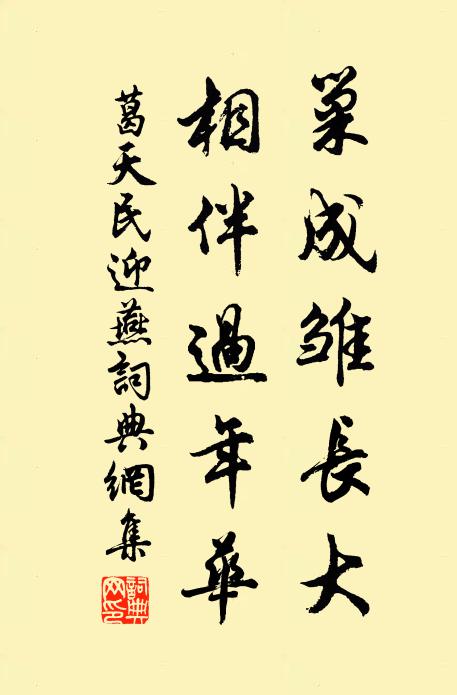 巢成雛長大
相伴過年華
葛天民迎燕詞典網集
詞典網印